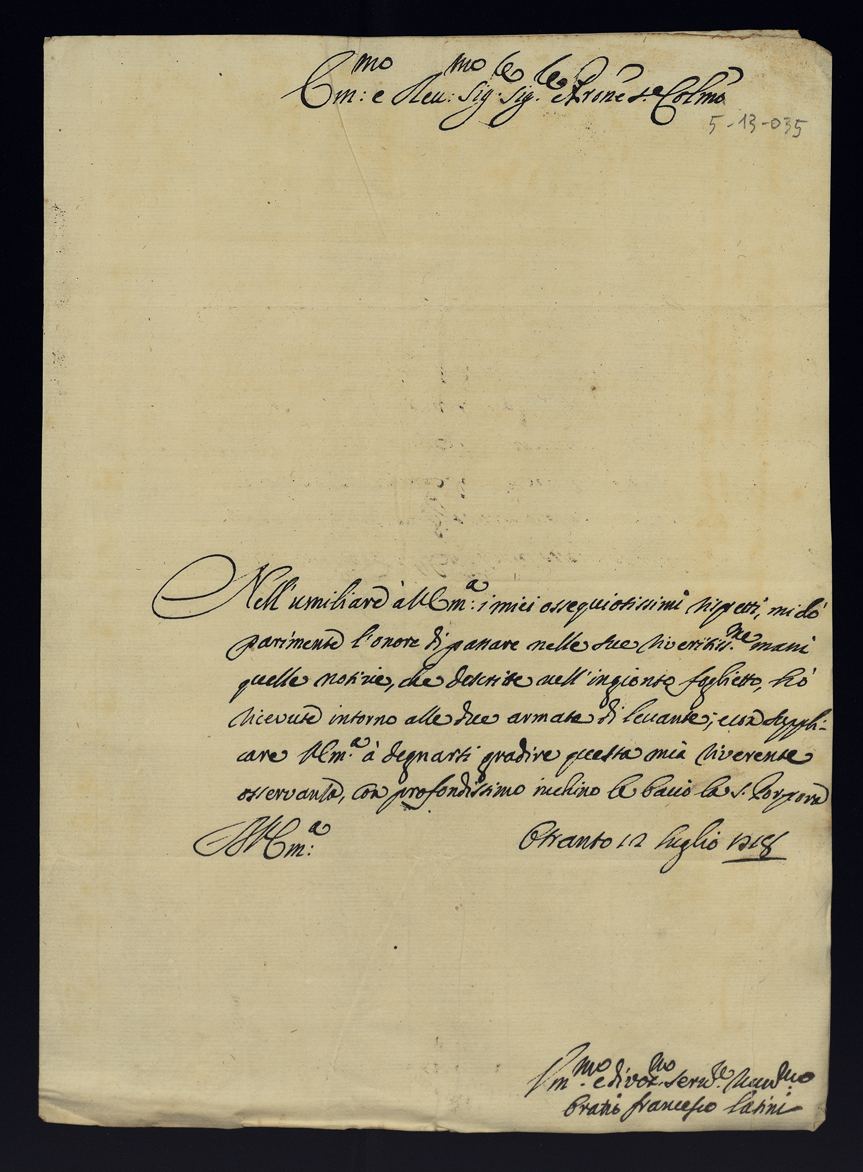 Em:mo e Reu:mo Sig:re Sig:re e Prone Colmo
5-13-035
Nell'umiliare à V Em:a i miei ossequiosissimi rispetti, mi dò
parimente l'onore di passare nelle sue riveritis:me mani
quelle notizie, che descritte nell'ingionto foglietto, hò
ricevute intorno alle due armate di levante; e con suppli-
care V Em:a à degnarsi gradire questa mia riverente
osservanza, con profondissimo inchino le bacio la s. Porpora
Di V Em:a
Otranto 12 luglio 1718
Vm:mo e divot:mo seru:re
Orazio Francesco Latini